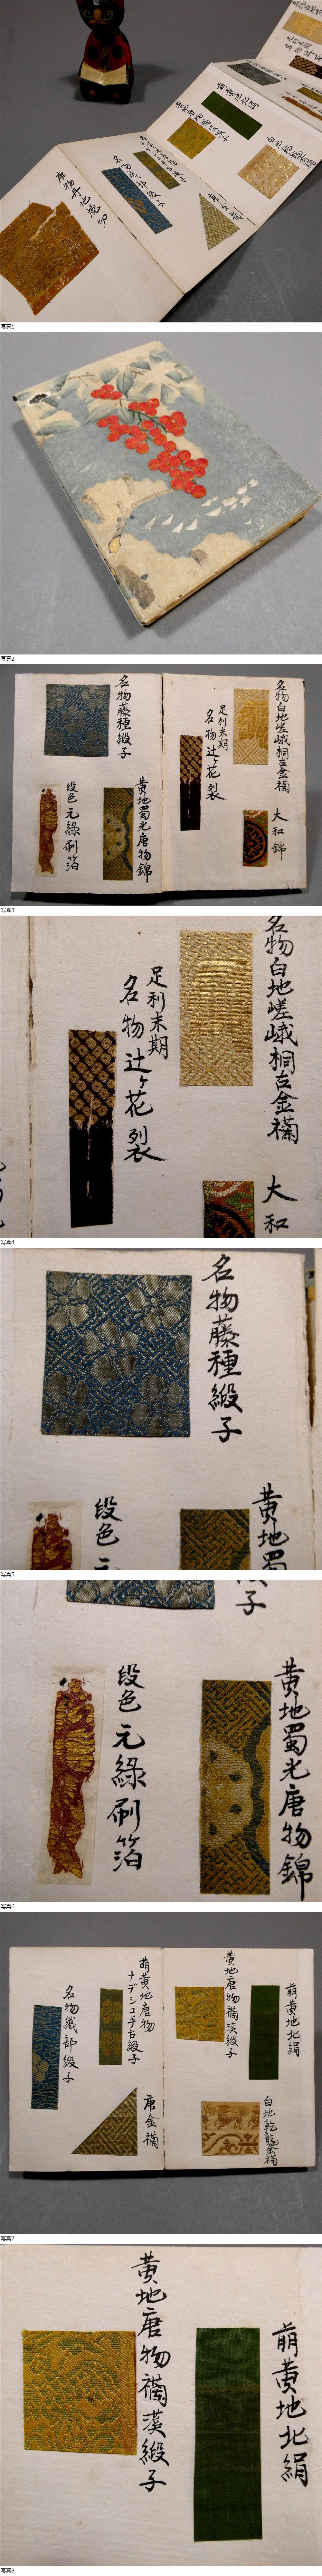 唐物丹地焼切
名物織部緞子
唐金襴
萌黄地北絹
写真1
写真2
名物白地嵯峨桐古金襴
大和錦
足利末期
名物辻ヶ花裂
名物藤種緞子
黄地蜀光唐物錦
段色元緑刷箔
写真3
名物白地嵯峨桐古金襴
大和
足利末期
名物辻ヶ花裂
写真4
名物藤種緞子
黄地蜀
段色元
写真5
子
黄地蜀光唐物錦
段色元緑刷箔
写真6
萌黄地北絹
白地乾龍金襴
黄地唐物襴漢緞子
萌黄地唐物
ナデシコ手古緞子
唐金襴
名物織部緞子
写真7
萌黄地北絹
黄地唐物襴漢緞子
写真8